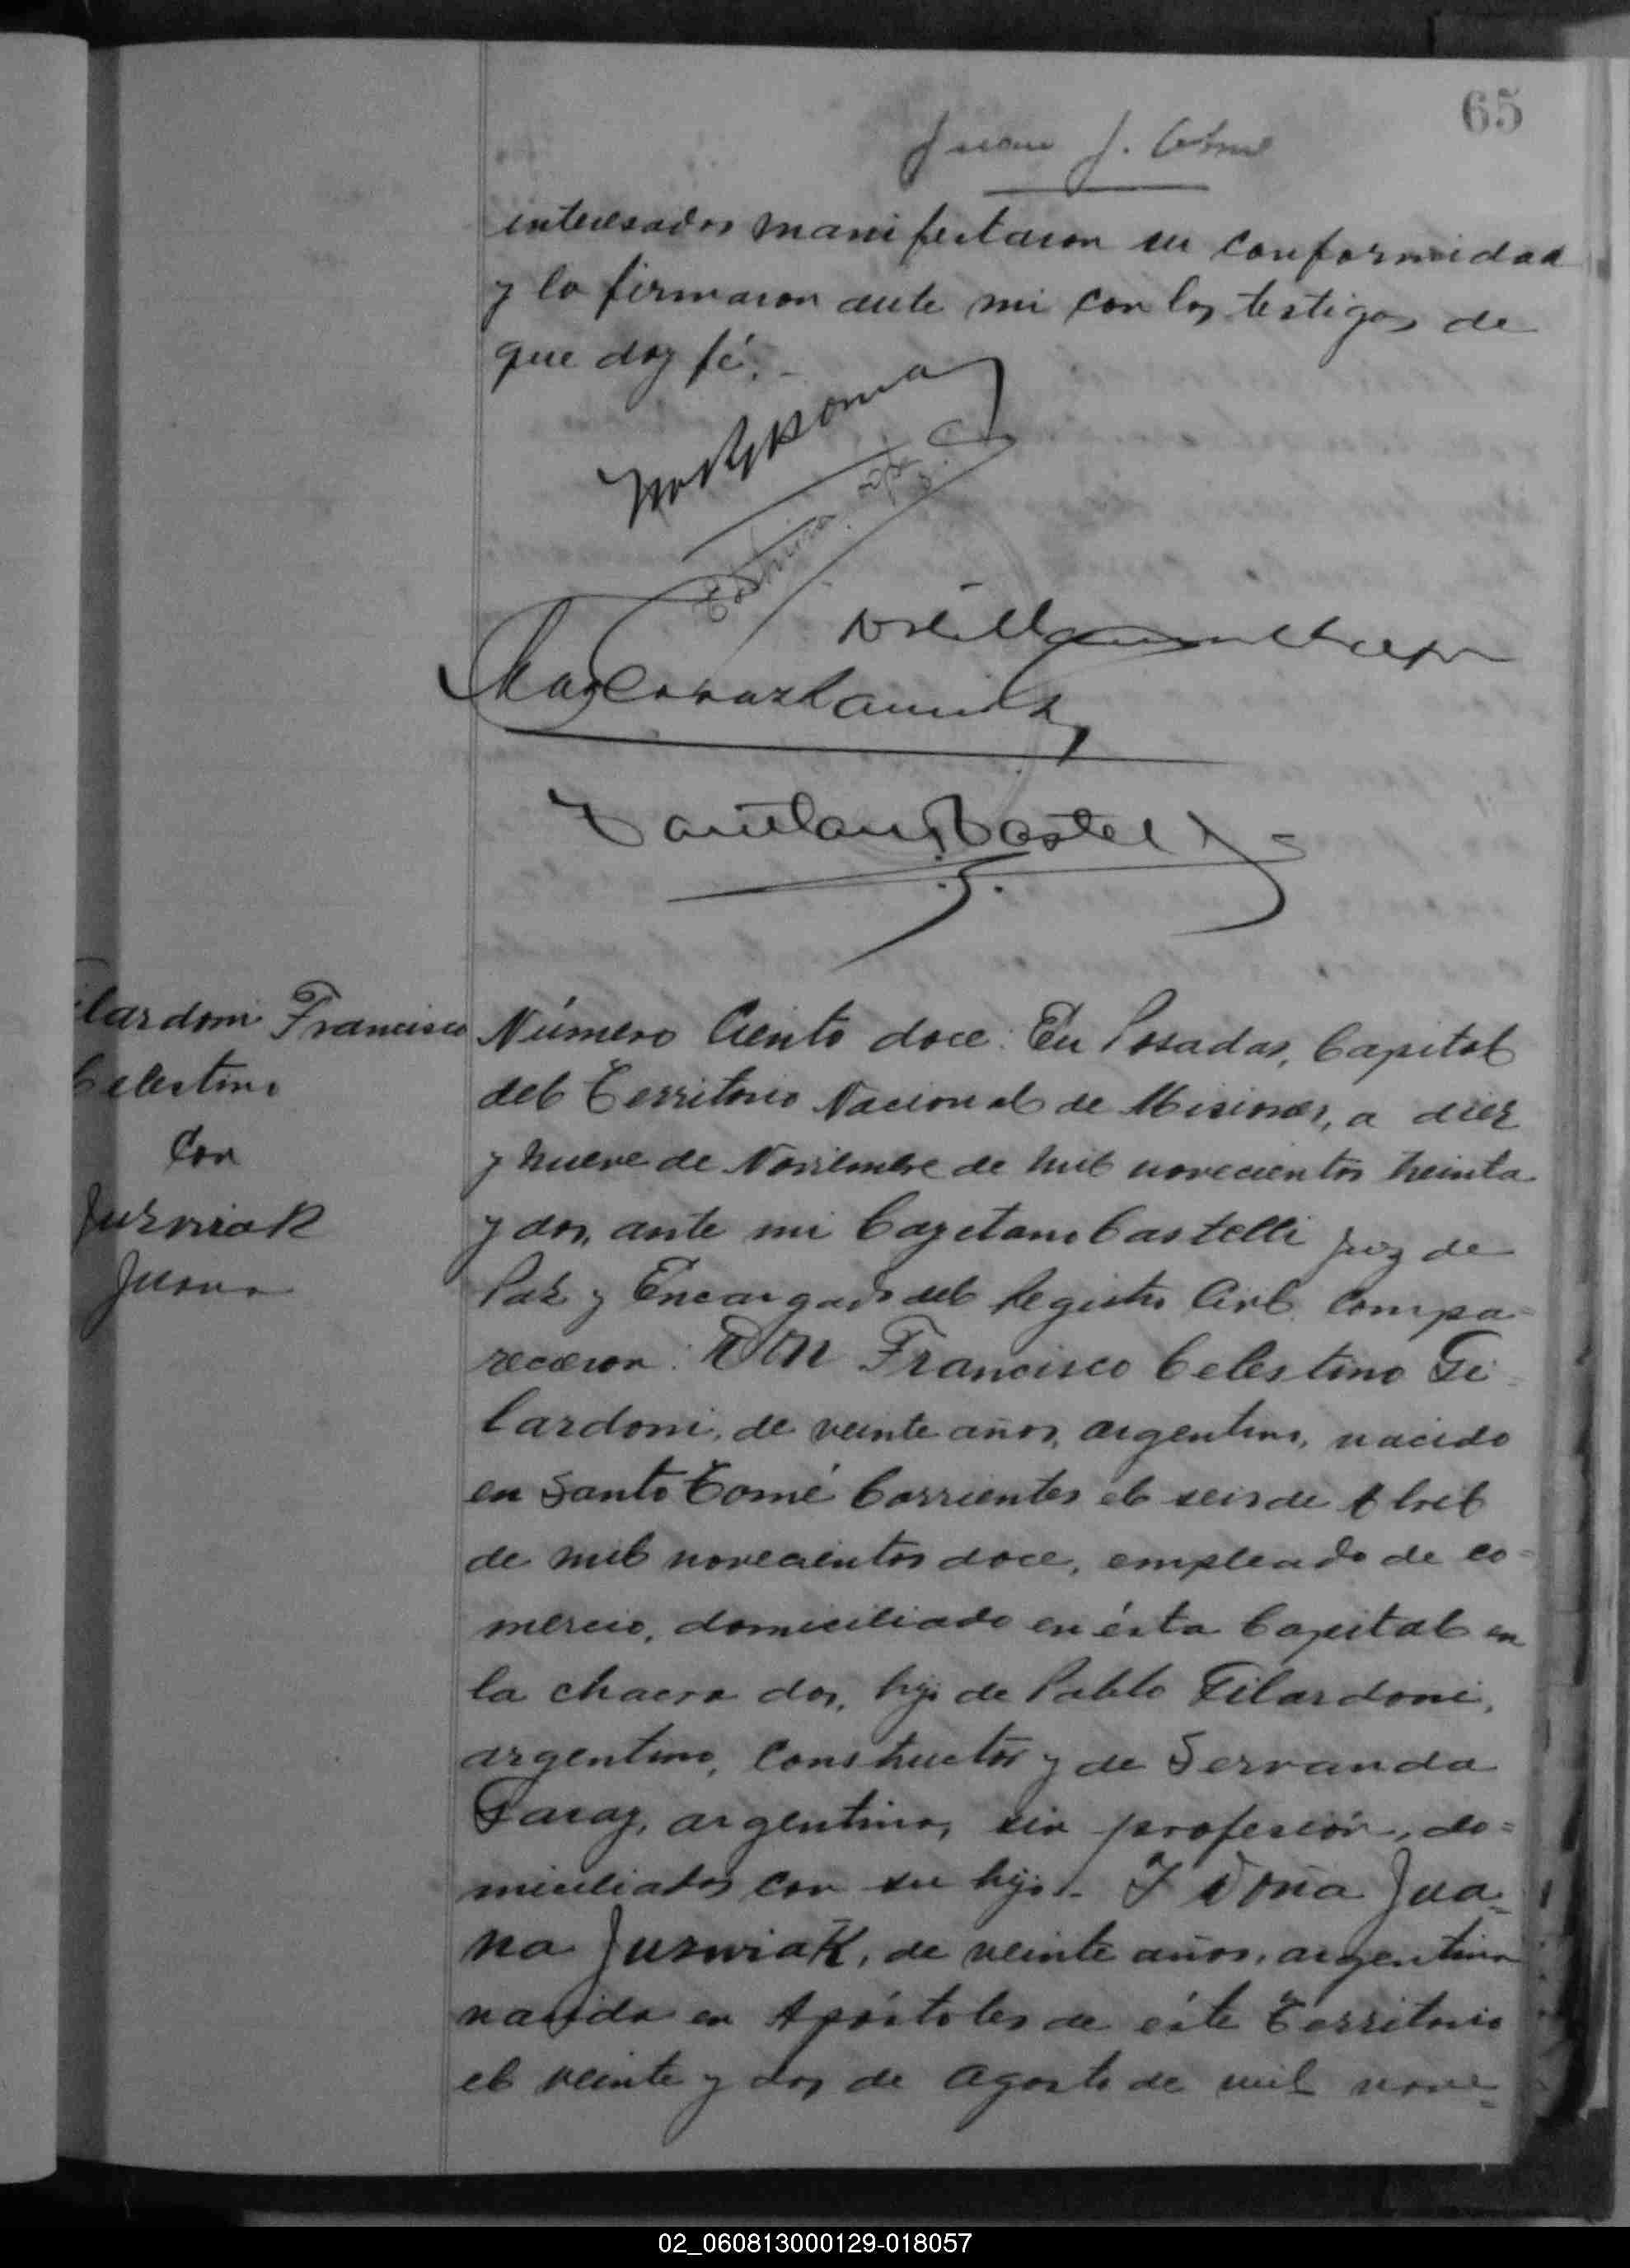 65
Juan J.
interesados manifestaron su conformidad
y lo firmaron ante mi con los testigos de
que doy fé.-
Cayetano Castelli
Número Ciento doce: En Posadas, Capital
del Territorio Nacional de Misiones, a diez
y nueve de Noviembre de mil novecientos treinta
y dos, ante mi Cayetano Castelli Juez de
Paz y Encargado del Registro Civil compa-
recieron: DON Francisco Celestino Gi-
lardoni, de veinte años, argentino, nacido
en Santo Tomé Corrientes el seis de Abril
de mil novecientos doce, empleado de co-
mercio, domiciliado en ésta Capital en
la chacra dos, hijo de Pablo Gilardoni,
argentino, constructor y de Servanda
Garay, argentina, sin profesión, do=
miciliados con su hijo.- Y Doña Jua=
na Juswiak, de veinte años, argentina
nacida en Apóstoles de éste Territorio
el veinte y dos de Agosto de mil nove=
ilardoni Francisco
Celestino
Con
Juswiak
Juana
02_060813000129-018057